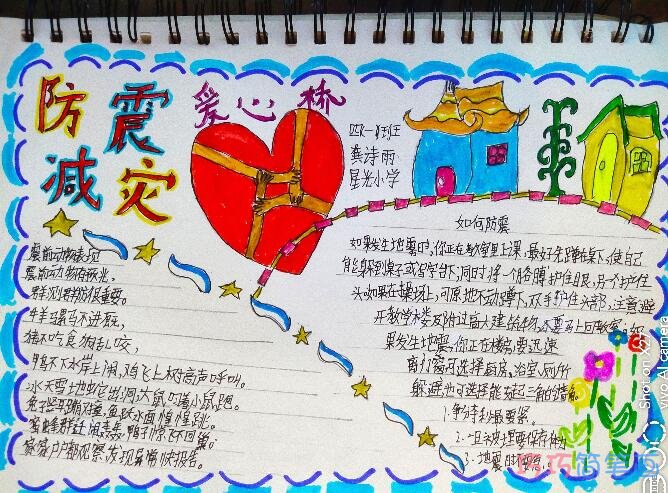 防震
减灾
爱心桥
四(一)班
龚诗雨
星光小学
震前动物表现
震前动物有预兆。
群测群防很重要。
牛羊骡马不进厩,
猪不吃食狗乱咬,
鸭不下水岸上闹,鸡飞上树高声呼叫。
冰天雪地蛇出洞,大鼠叼着小鼠跑。
鱼跃水面惶惶跳。
蜜蜂群迁闹轰轰,鸽子惊飞不回巢。
家家户户都观察,发现异常快报告。
如何防震
如果发生地震时,你正在教室里上课,最好先蹲在墙下,使自己
能躲到桌子或写字台下;同时将一个胳膊护住眼,另一个护住
头,如果在操场上,可原地不动蹲下,双手护住头部,注意避
开教学楼及附近高大建筑物,不要马上回教室;如
果发生地震,你正在楼房,要迅速
离门窗,可选择厨房、浴室、厕所
躲避,也可选择能支起三角的墙角。
1.争分夺秒最要紧。
2.一旦被埋要保存体力
3.地震时